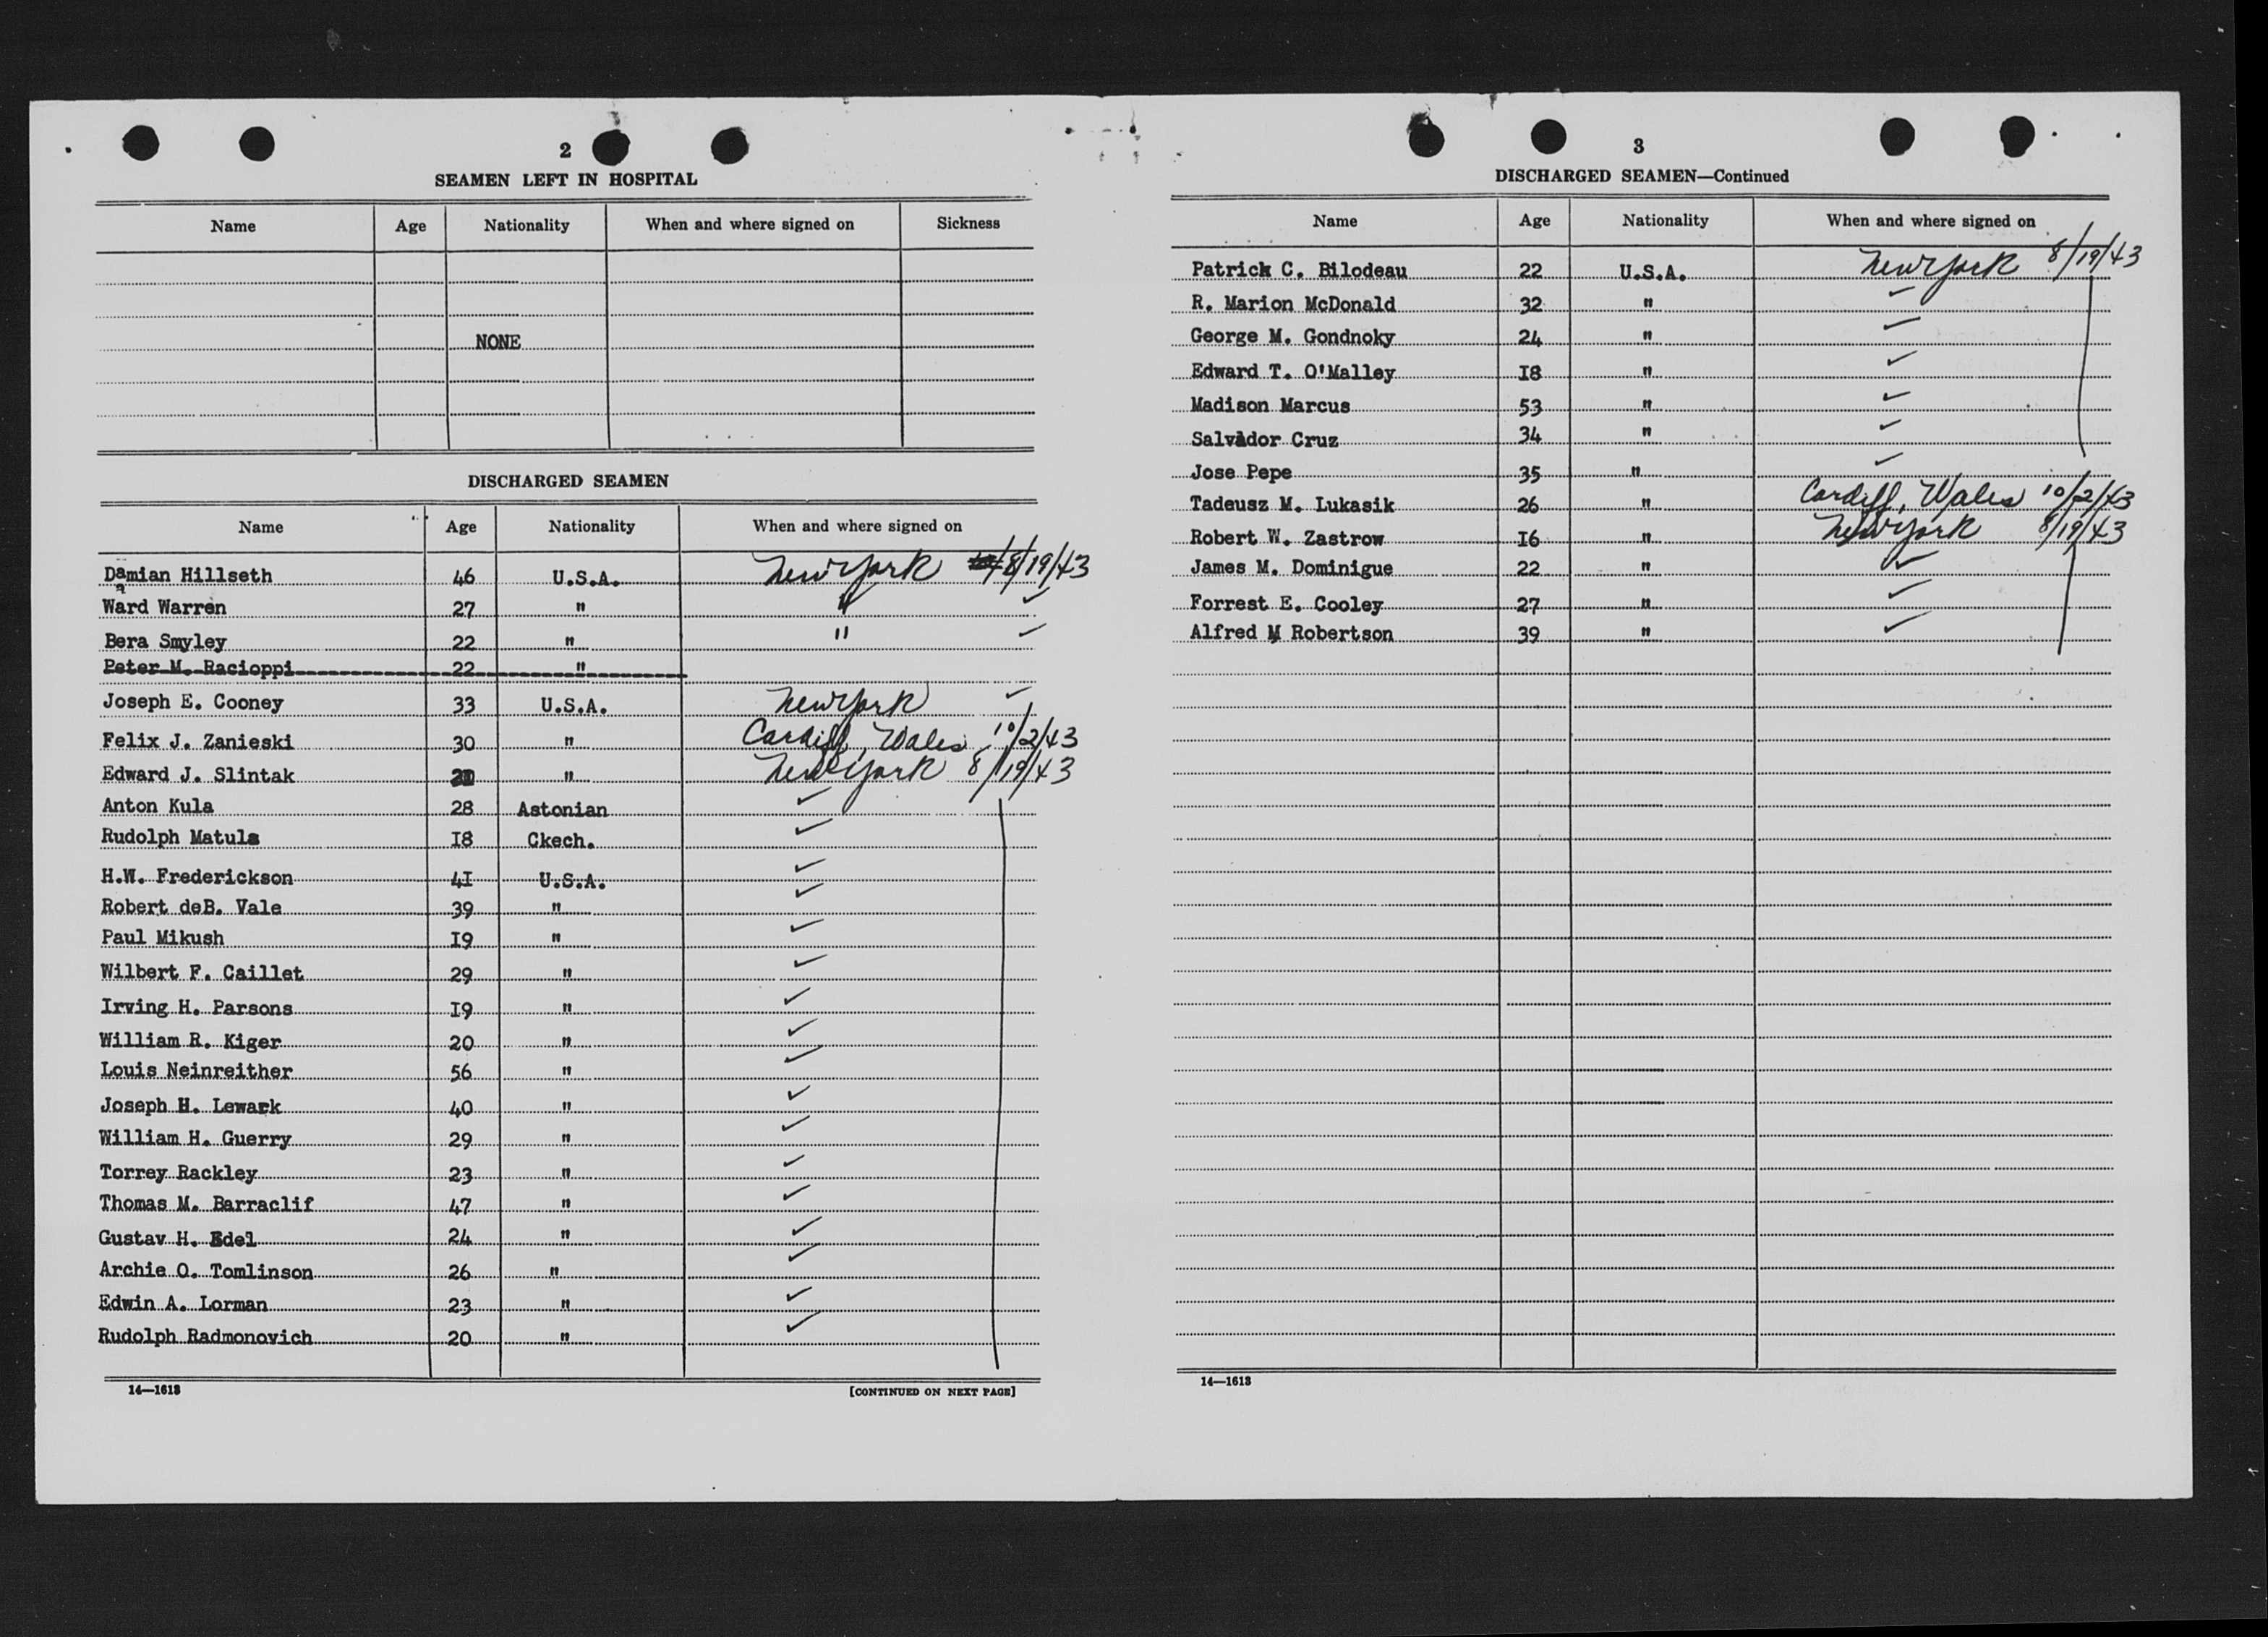 2
SEAMEN LEFT IN HOSPITAL
Name Age Nationality When and where signed on Sickness
NONE
DISCHARGED SEAMEN
Name Age Nationality When and where signed on
Damian Hillseth 46 U.S.A. New York 8/19/43
Ward Warren 27 " " ✓
Bera Smyley 22 " " ✓
Peter M. Racioppi 22 "
Joseph E. Cooney 33 U.S.A. New York ✓
Felix J. Zanieski 30 " Cardiff, Wales 10/2/43
Edward J. Slintak " New York 8/19/43
Anton Kula 28 Astonian ✓
Rudolph Matula 18 Ckech. ✓
H.W. Frederickson 4I U.S.A. ✓
Robert deB. Vale 39 " ✓
Paul Mikush I9 " ✓
Wilbert F. Caillet 29 " ✓
Irving H. Parsons I9 " ✓
William R. Kiger 20 " ✓
Louis Neinreither 56 " ✓
Joseph H. Lewark 40 " ✓
William H. Guerry 29 " ✓
Torrey Rackley 23 " ✓
Thomas M. Barraclif 47 " ✓
Gustav H. Edel 24 " ✓
Archie O. Tomlinson 26 " ✓
Edwin A. Lorman 23 " ✓
Rudolph Radmonovich 20 " ✓
14—1613 [CONTINUED ON NEXT PAGE]
3
DISCHARGED SEAMEN—Continued
Name Age Nationality When and where signed on
Patrick C. Bilodeau 22 U.S.A. New York 8/19/43
R. Marion McDonald 32 " ✓
George M. Gondnoky 24 " ✓
Edward T. O'Malley I8 " ✓
Madison Marcus 53 " ✓
Salvador Cruz 34 " ✓
Jose Pepe 35 " ✓
Tadeusz M. Lukasik 26 " Cardiff, Wales 10/2/43
Robert W. Zastrow I6 " New York 8/19/43
James M. Dominigue 22 " ✓
Forrest E. Cooley 27 " ✓
Alfred M Robertson 39 " ✓
14—1613